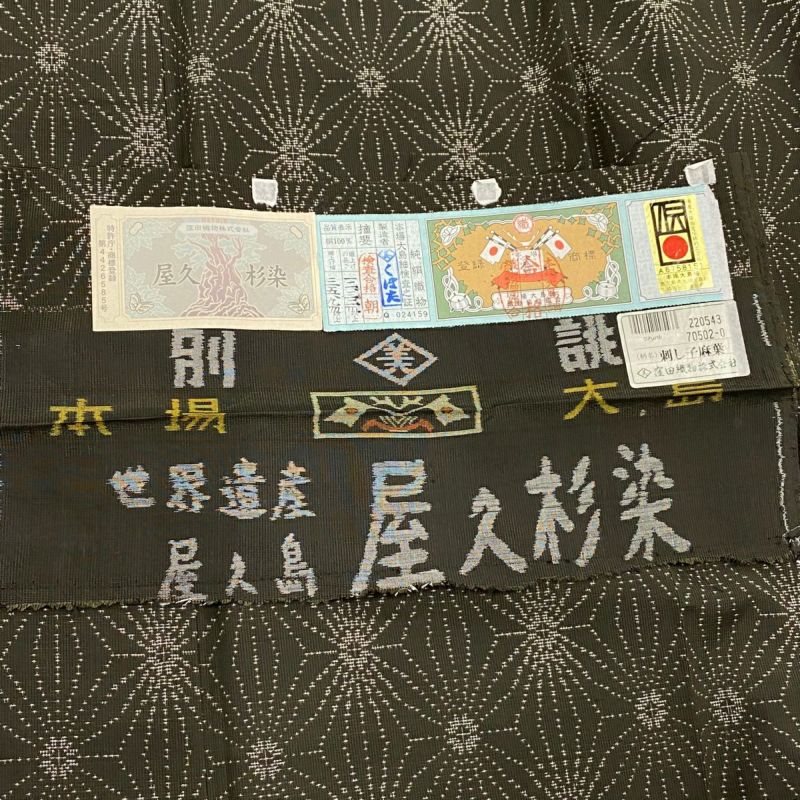 窪田織物株式会社
屋久 杉染
特許庁・商標登録
第4426585号
純絹織物
本場大島紬検査之証
製造者 くぼた
摘要
品質表示
絹100%
検査合格
朝
Q 024159
登録 商標
合
伝
220543
70502-0
(柄名) 刺し子麻葉
窪田織物株式会社
別 美 誂
本場 大島
世界遺産
屋久島
屋久杉染